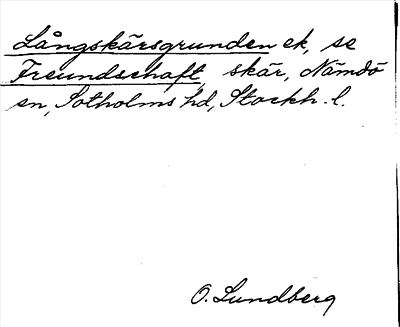 Långskärsgrunden ek, se
Freundschaft, skär, Nämdö
sn, Sotholms hd, Stockh. l.
O. Lundberg